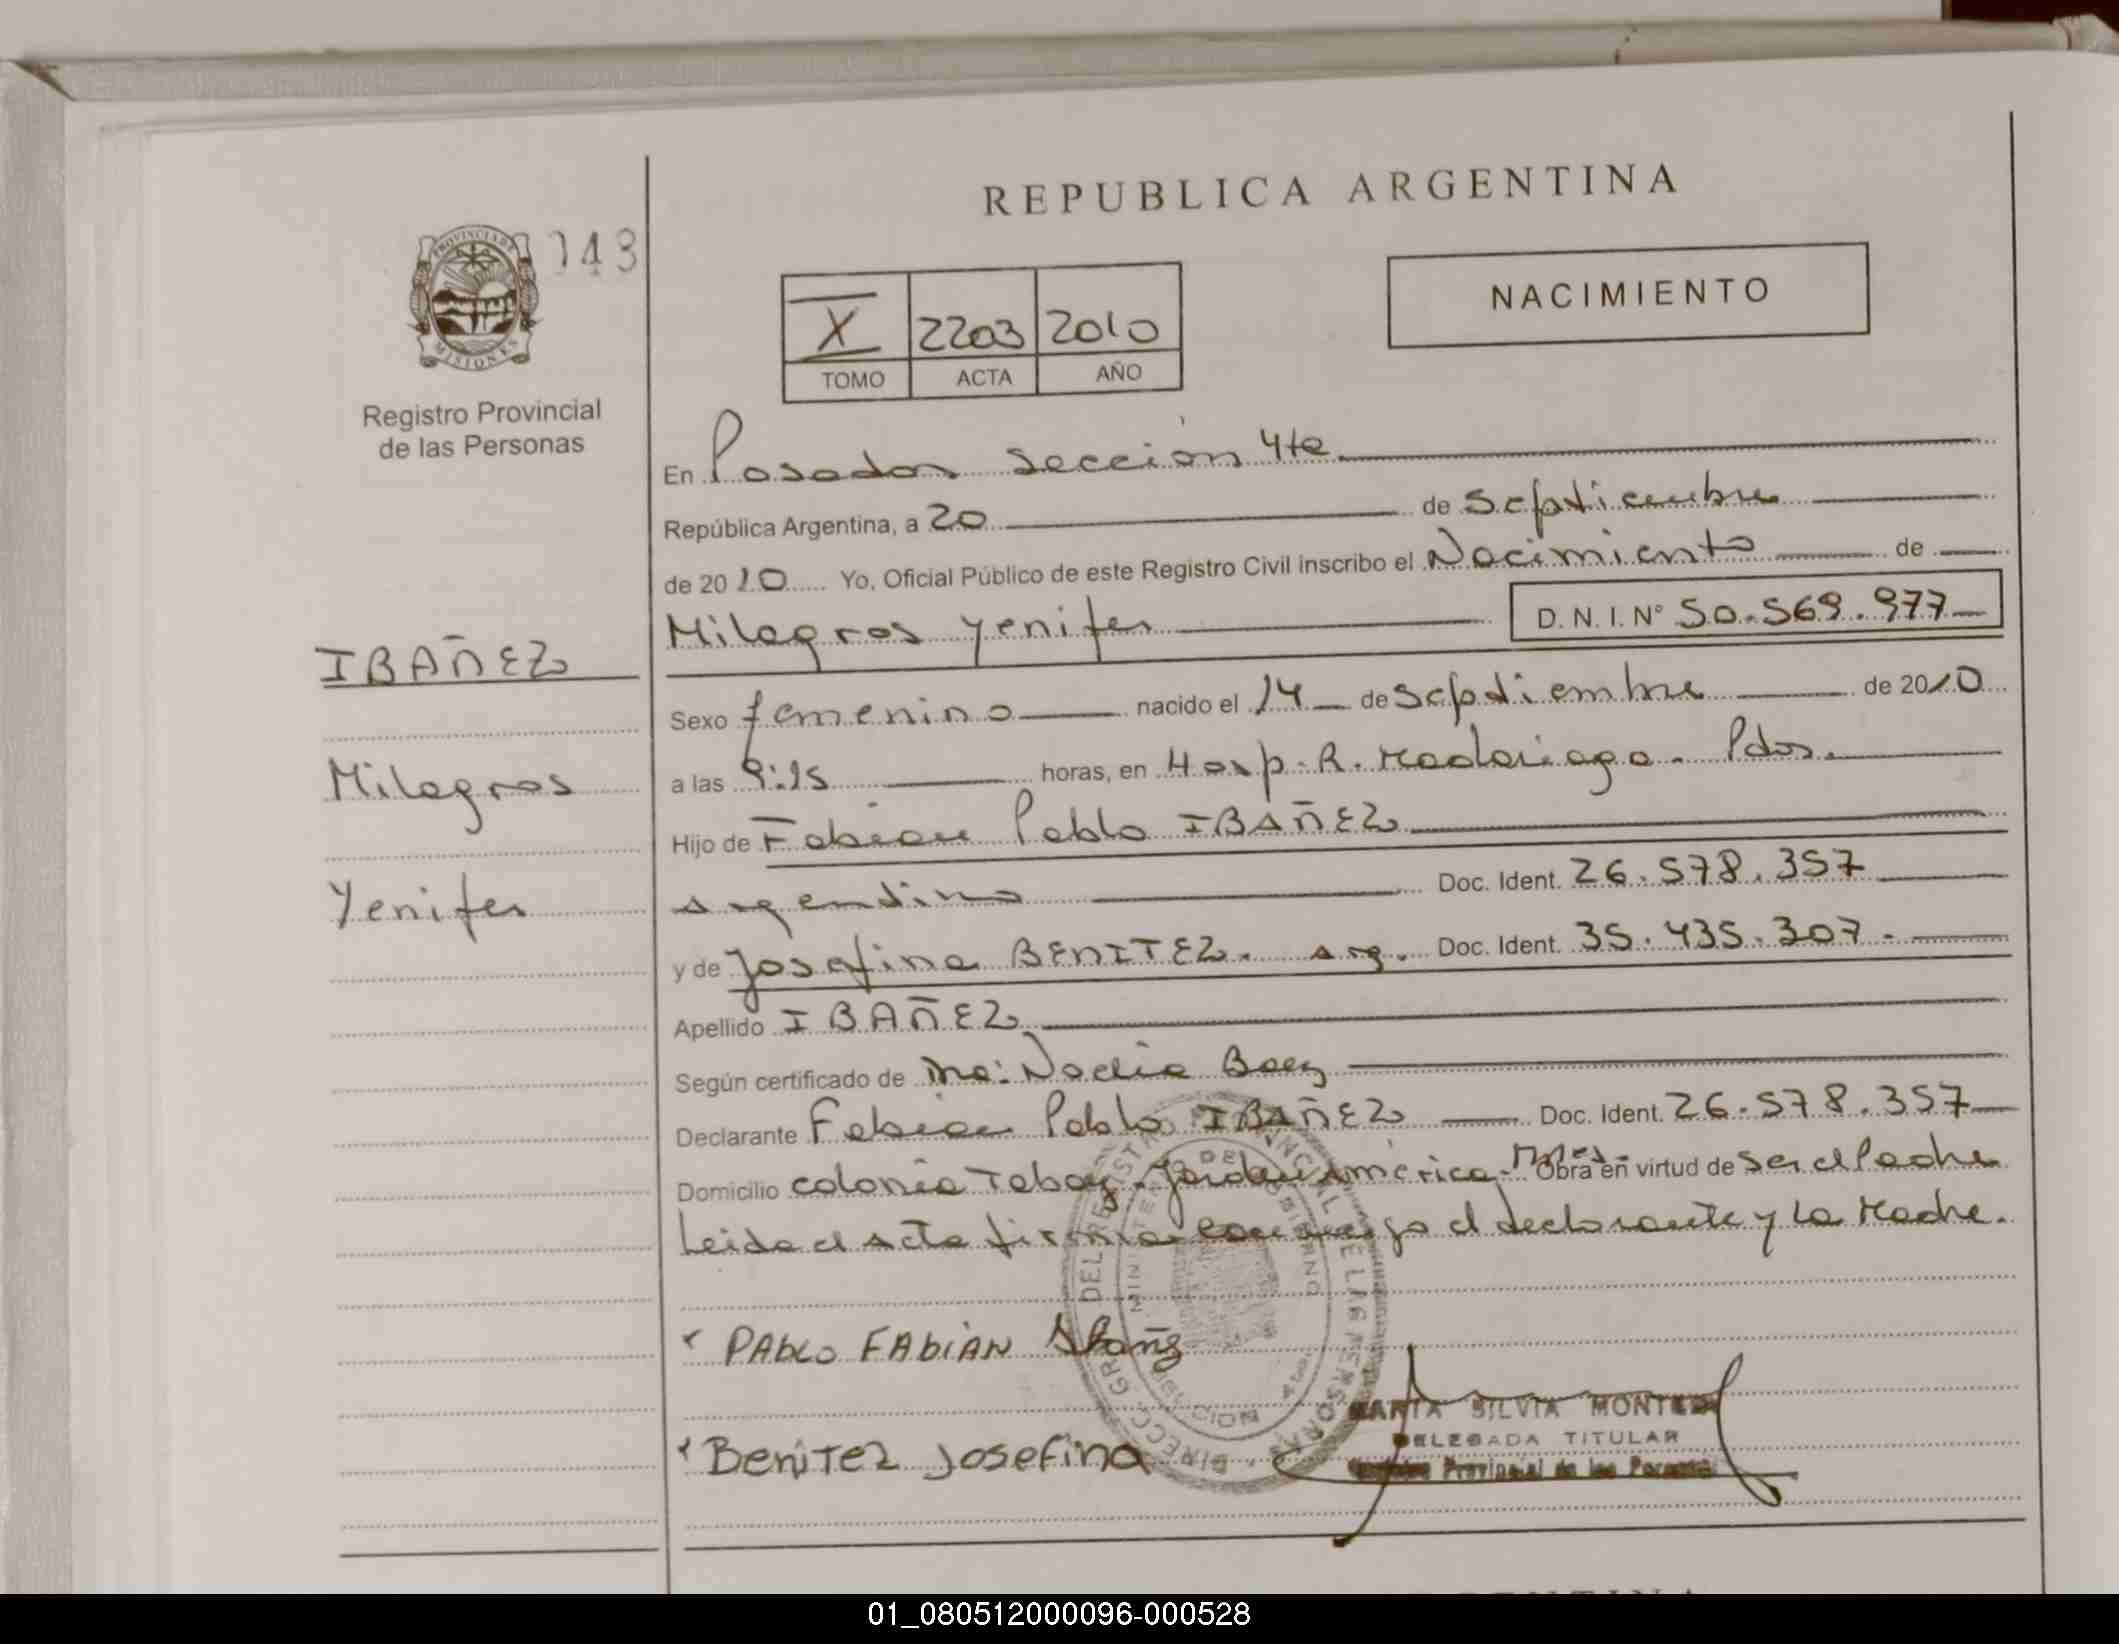 REPUBLICA ARGENTINA
PROVINCIA DE
MISIONES
043
Registro Provincial
de las Personas
NACIMIENTO
X 2203 2010
TOMO ACTA AÑO
En Posadas sección 4ta
República Argentina, a 20 de Septiembre
de 2010 Yo, Oficial Público de este Registro Civil inscribo el Nacimiento de
Milagros Yenifer D. N. I. N° 50.569.977
IBAÑEZ
Sexo femenino nacido el 14 de Septiembre de 2010
Milagros
a las 9:15 horas, en Hosp. R. Madariaga. Pdas.
Hijo de Fabian Pablo IBAÑEZ
Yenifer
argentino Doc. Ident. 26.578.357
y de Josefina BENITEZ. arg. Doc. Ident. 35.435.307.-
Apellido IBAÑEZ
Según certificado de Nadia Baez
Declarante Fabian Pablo IBAÑEZ Doc. Ident. 26.578.357
Domicilio colonia Tabay. Jardin America. Mnes. Obra en virtud de ser el Padre
Leida el acta firma conmigo el declarante y La Madre.
PAbLO FAbiAN Ibañez
Benitez Josefina
MARTA SILVIA MONTERO
DELEGADA TITULAR
Registro Provincial de las Personas
01_080512000096-000528